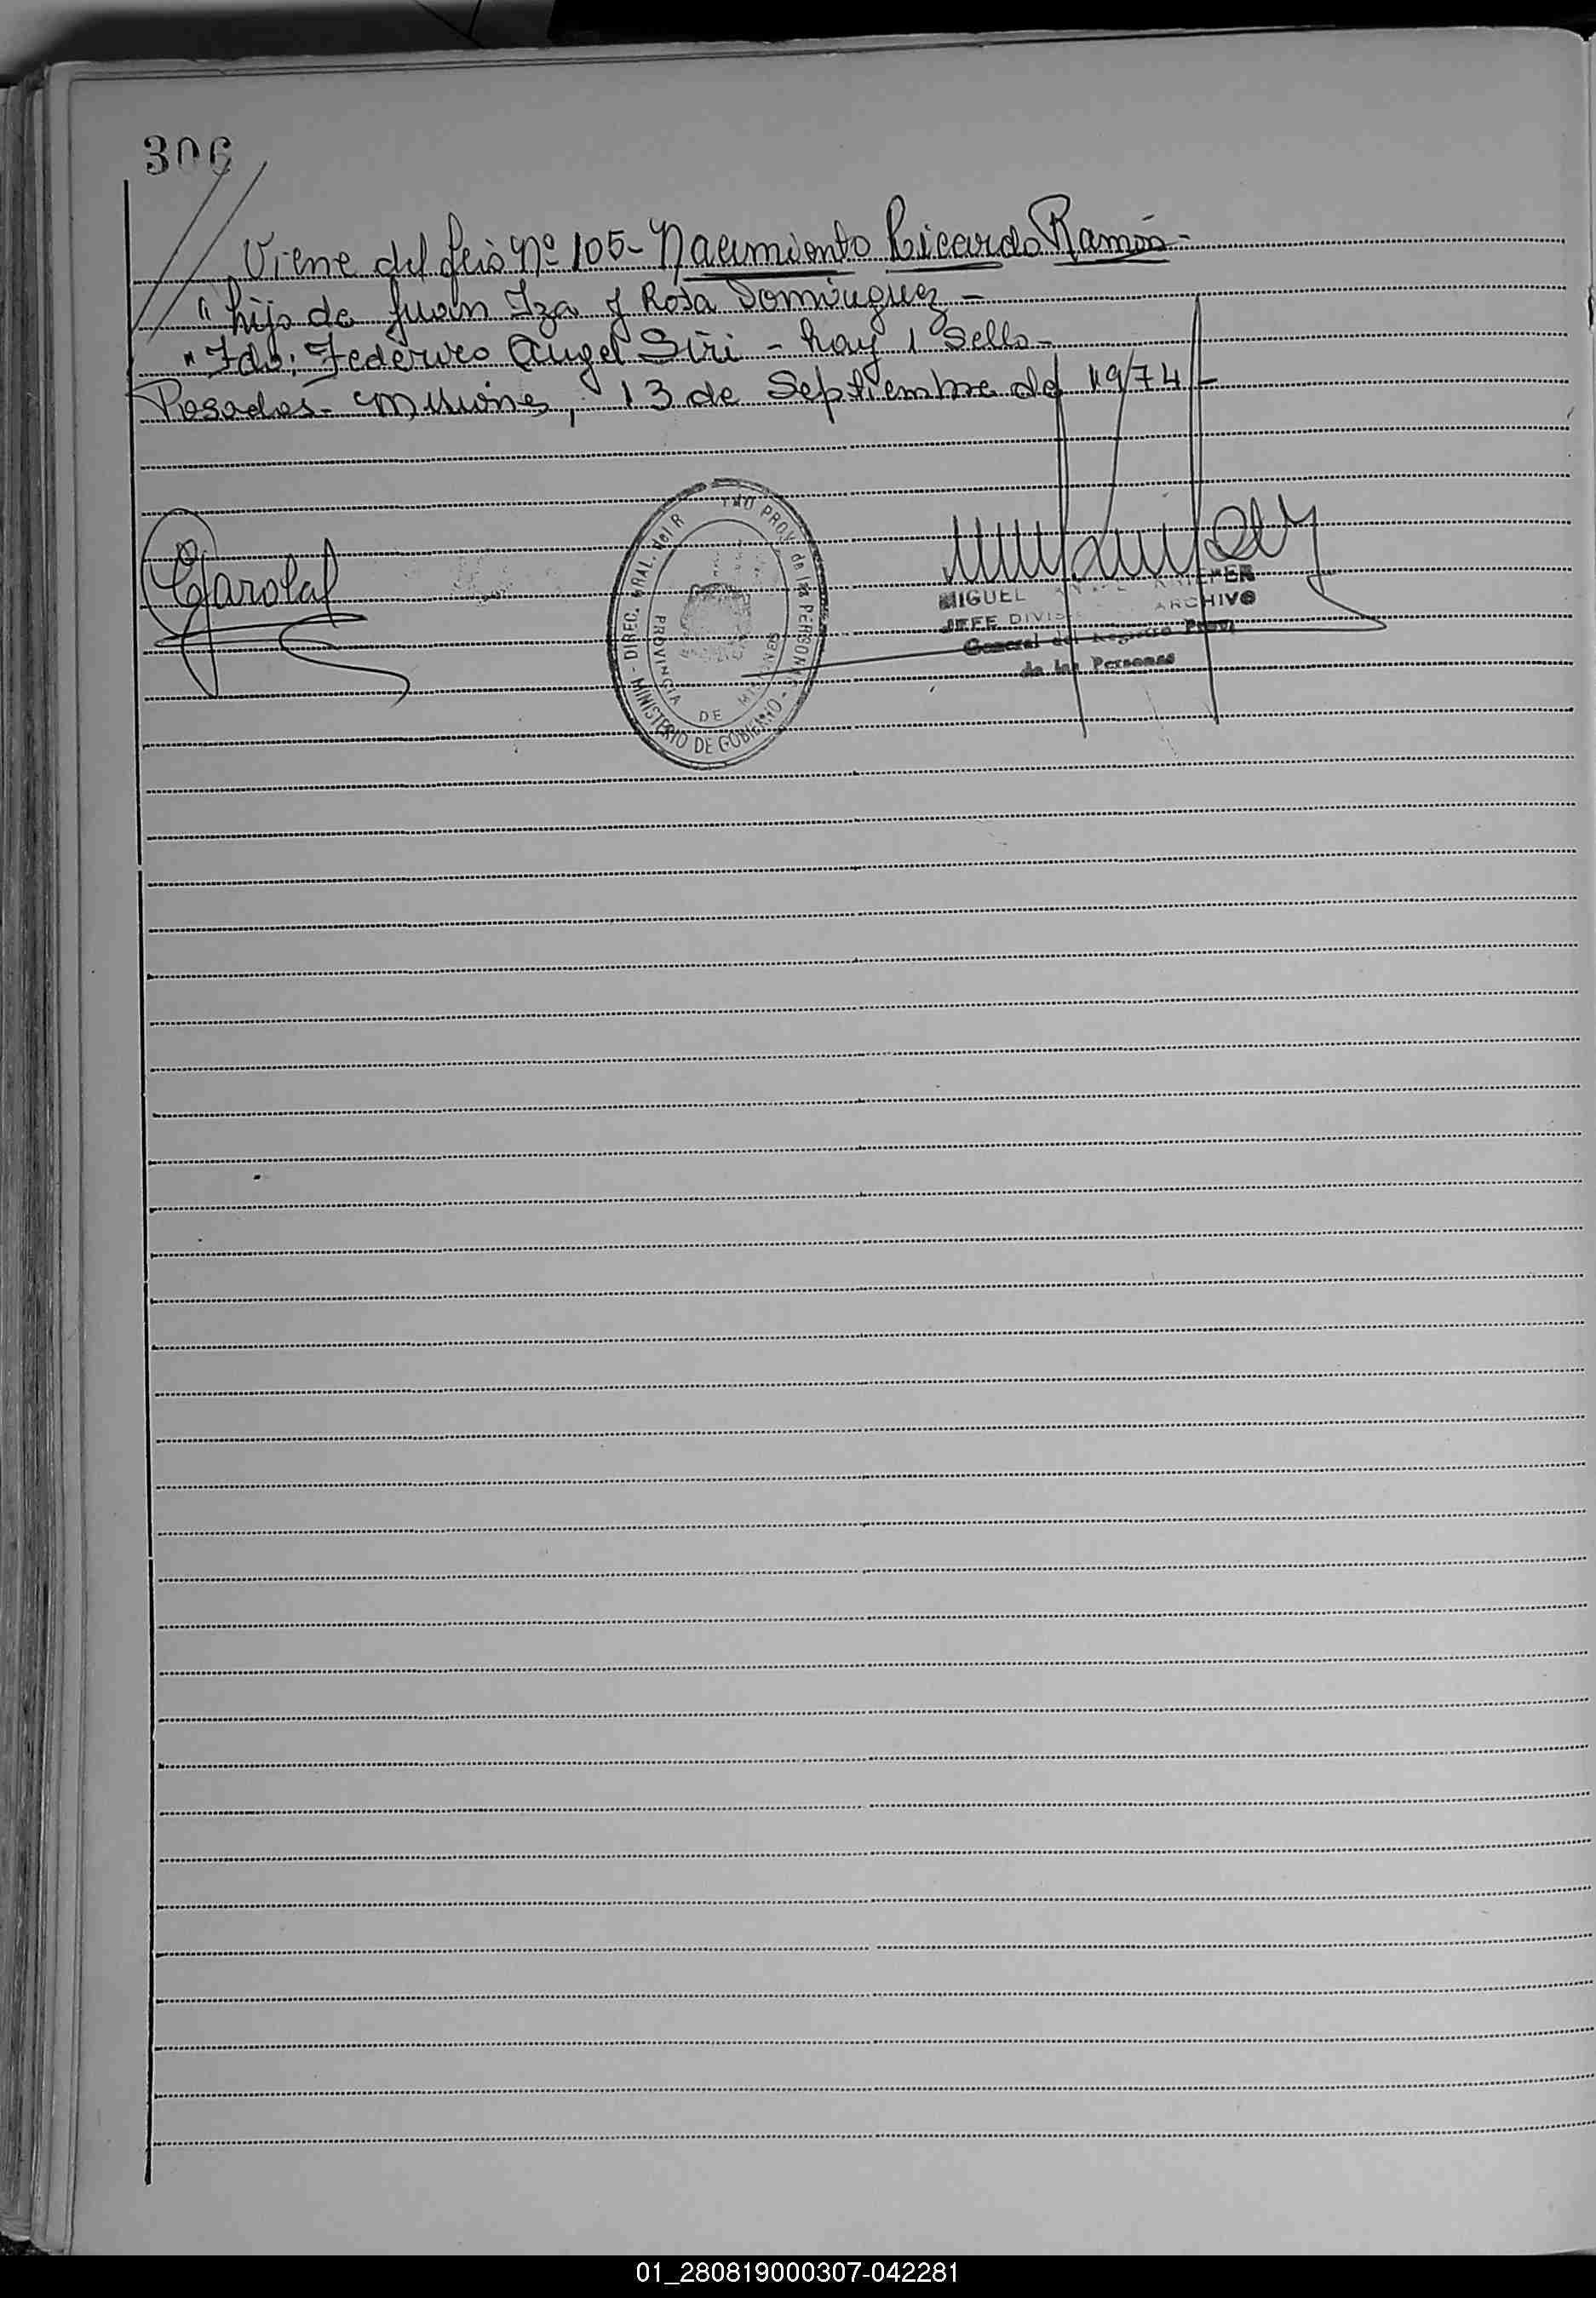 306
Viene del feio Nº 105- Nacimiento Ricardo Ramón-
" hijo de Juan Iza y Rosa Dominguez -
" Fdo: Federico Angel Siri - hay 1 Sello-
Posadas- Misiones, 13 de Septiembre del 1974-
DIREC. GRAL. del R TRO PROV. de las PERSONAS - MINISTERIO DE GOBIERNO -
PROVINCIA DE MISIONES
MIGUEL
JEFE DIVIS ARCHIVO
General del Registro Prov
de las Personas
01_280819000307-042281